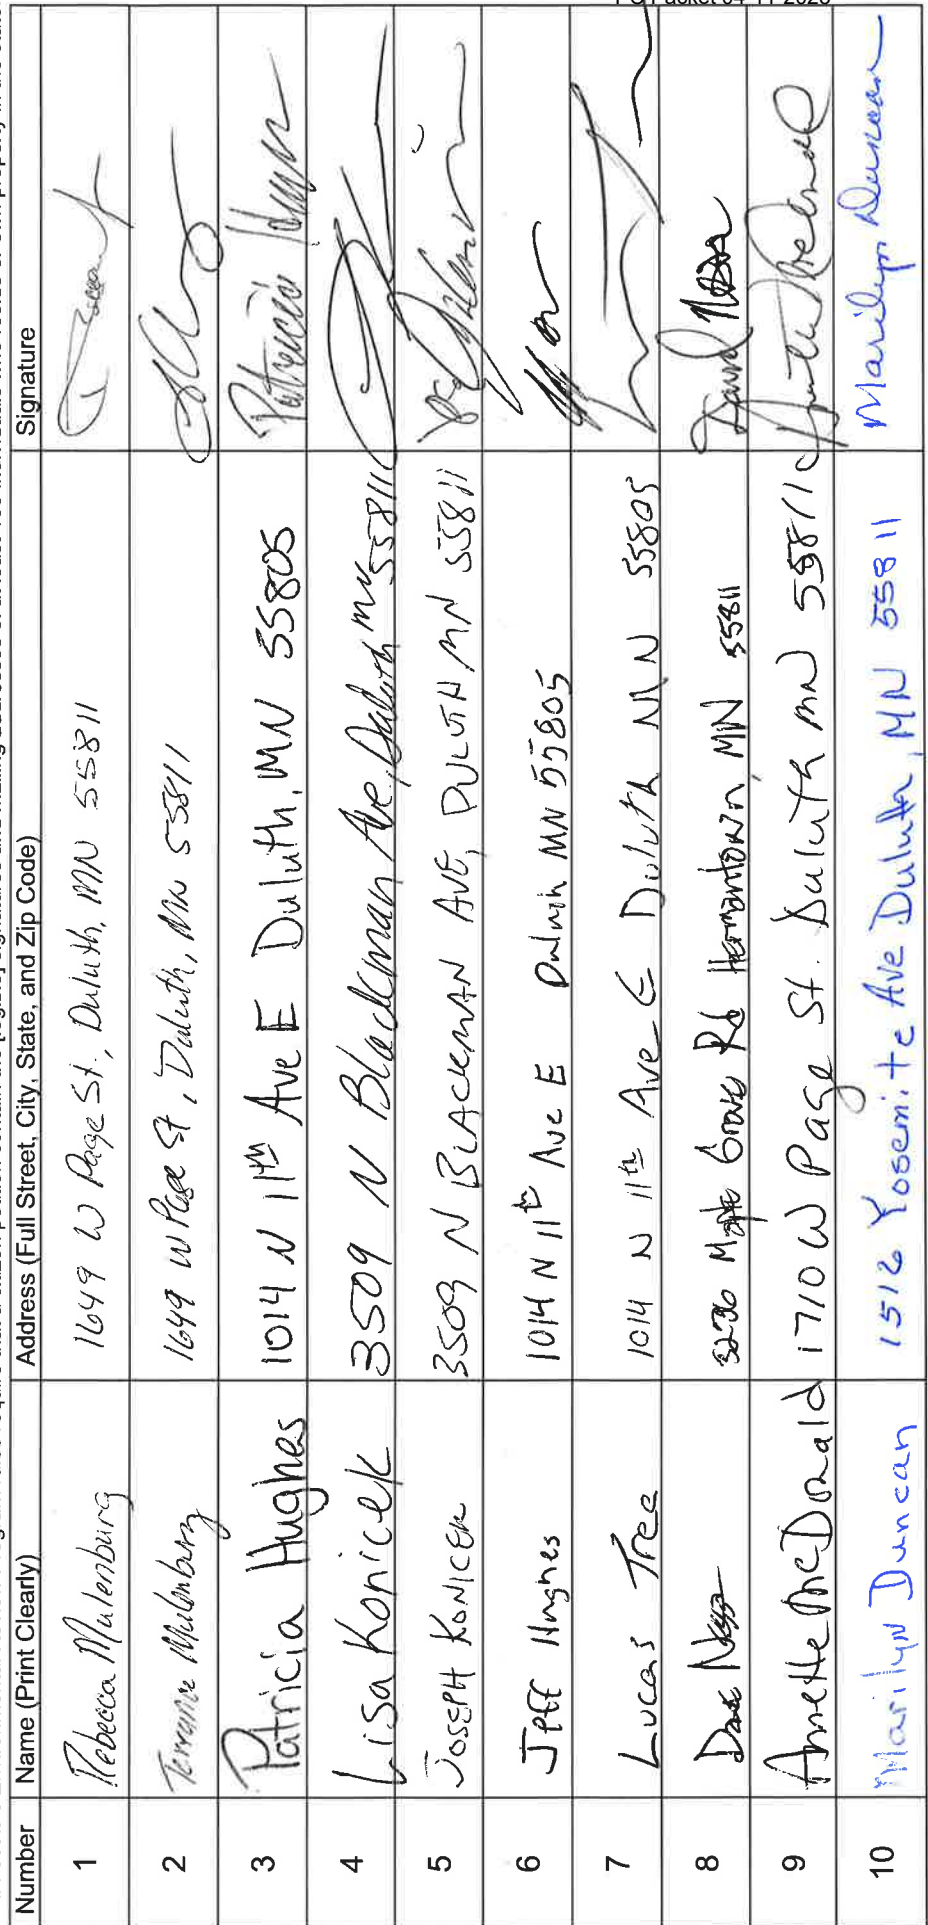 PC Packet 04-11-2023
Number Name (Print Clearly) Address (Full Street, City, State, and Zip Code) Signature
1 Rebecca Mulenburg 1649 W Page St, Duluth, MN 55811
2 Terrance Mulenburg 1649 W Page St, Duluth, MN 55811
3 Patricia Hughes 1014 N 11th Ave E Duluth, MN 55805 Patricia Hughes
4 Lisa Konicek 3509 N Blackman Ave, Duluth MN 55811
5 JOSEPH KONICEK 3509 N BLACKMAN AVE, DULUTH, MN 55811
6 Jeff Hughes 1014 N 11th Ave E Duluth MN 55805
7 Lucas Tree 1014 N 11th Ave E Duluth MN 55805
8 Dave Maple Grove Rd Hermantown, MN 55811 David
9 Annette McDonald 1710 W Page St. Duluth MN 55811 Annette McDonald
10 Marilyn Duncan 1512 Yosemite Ave Duluth, MN 55811 Marilyn Duncan